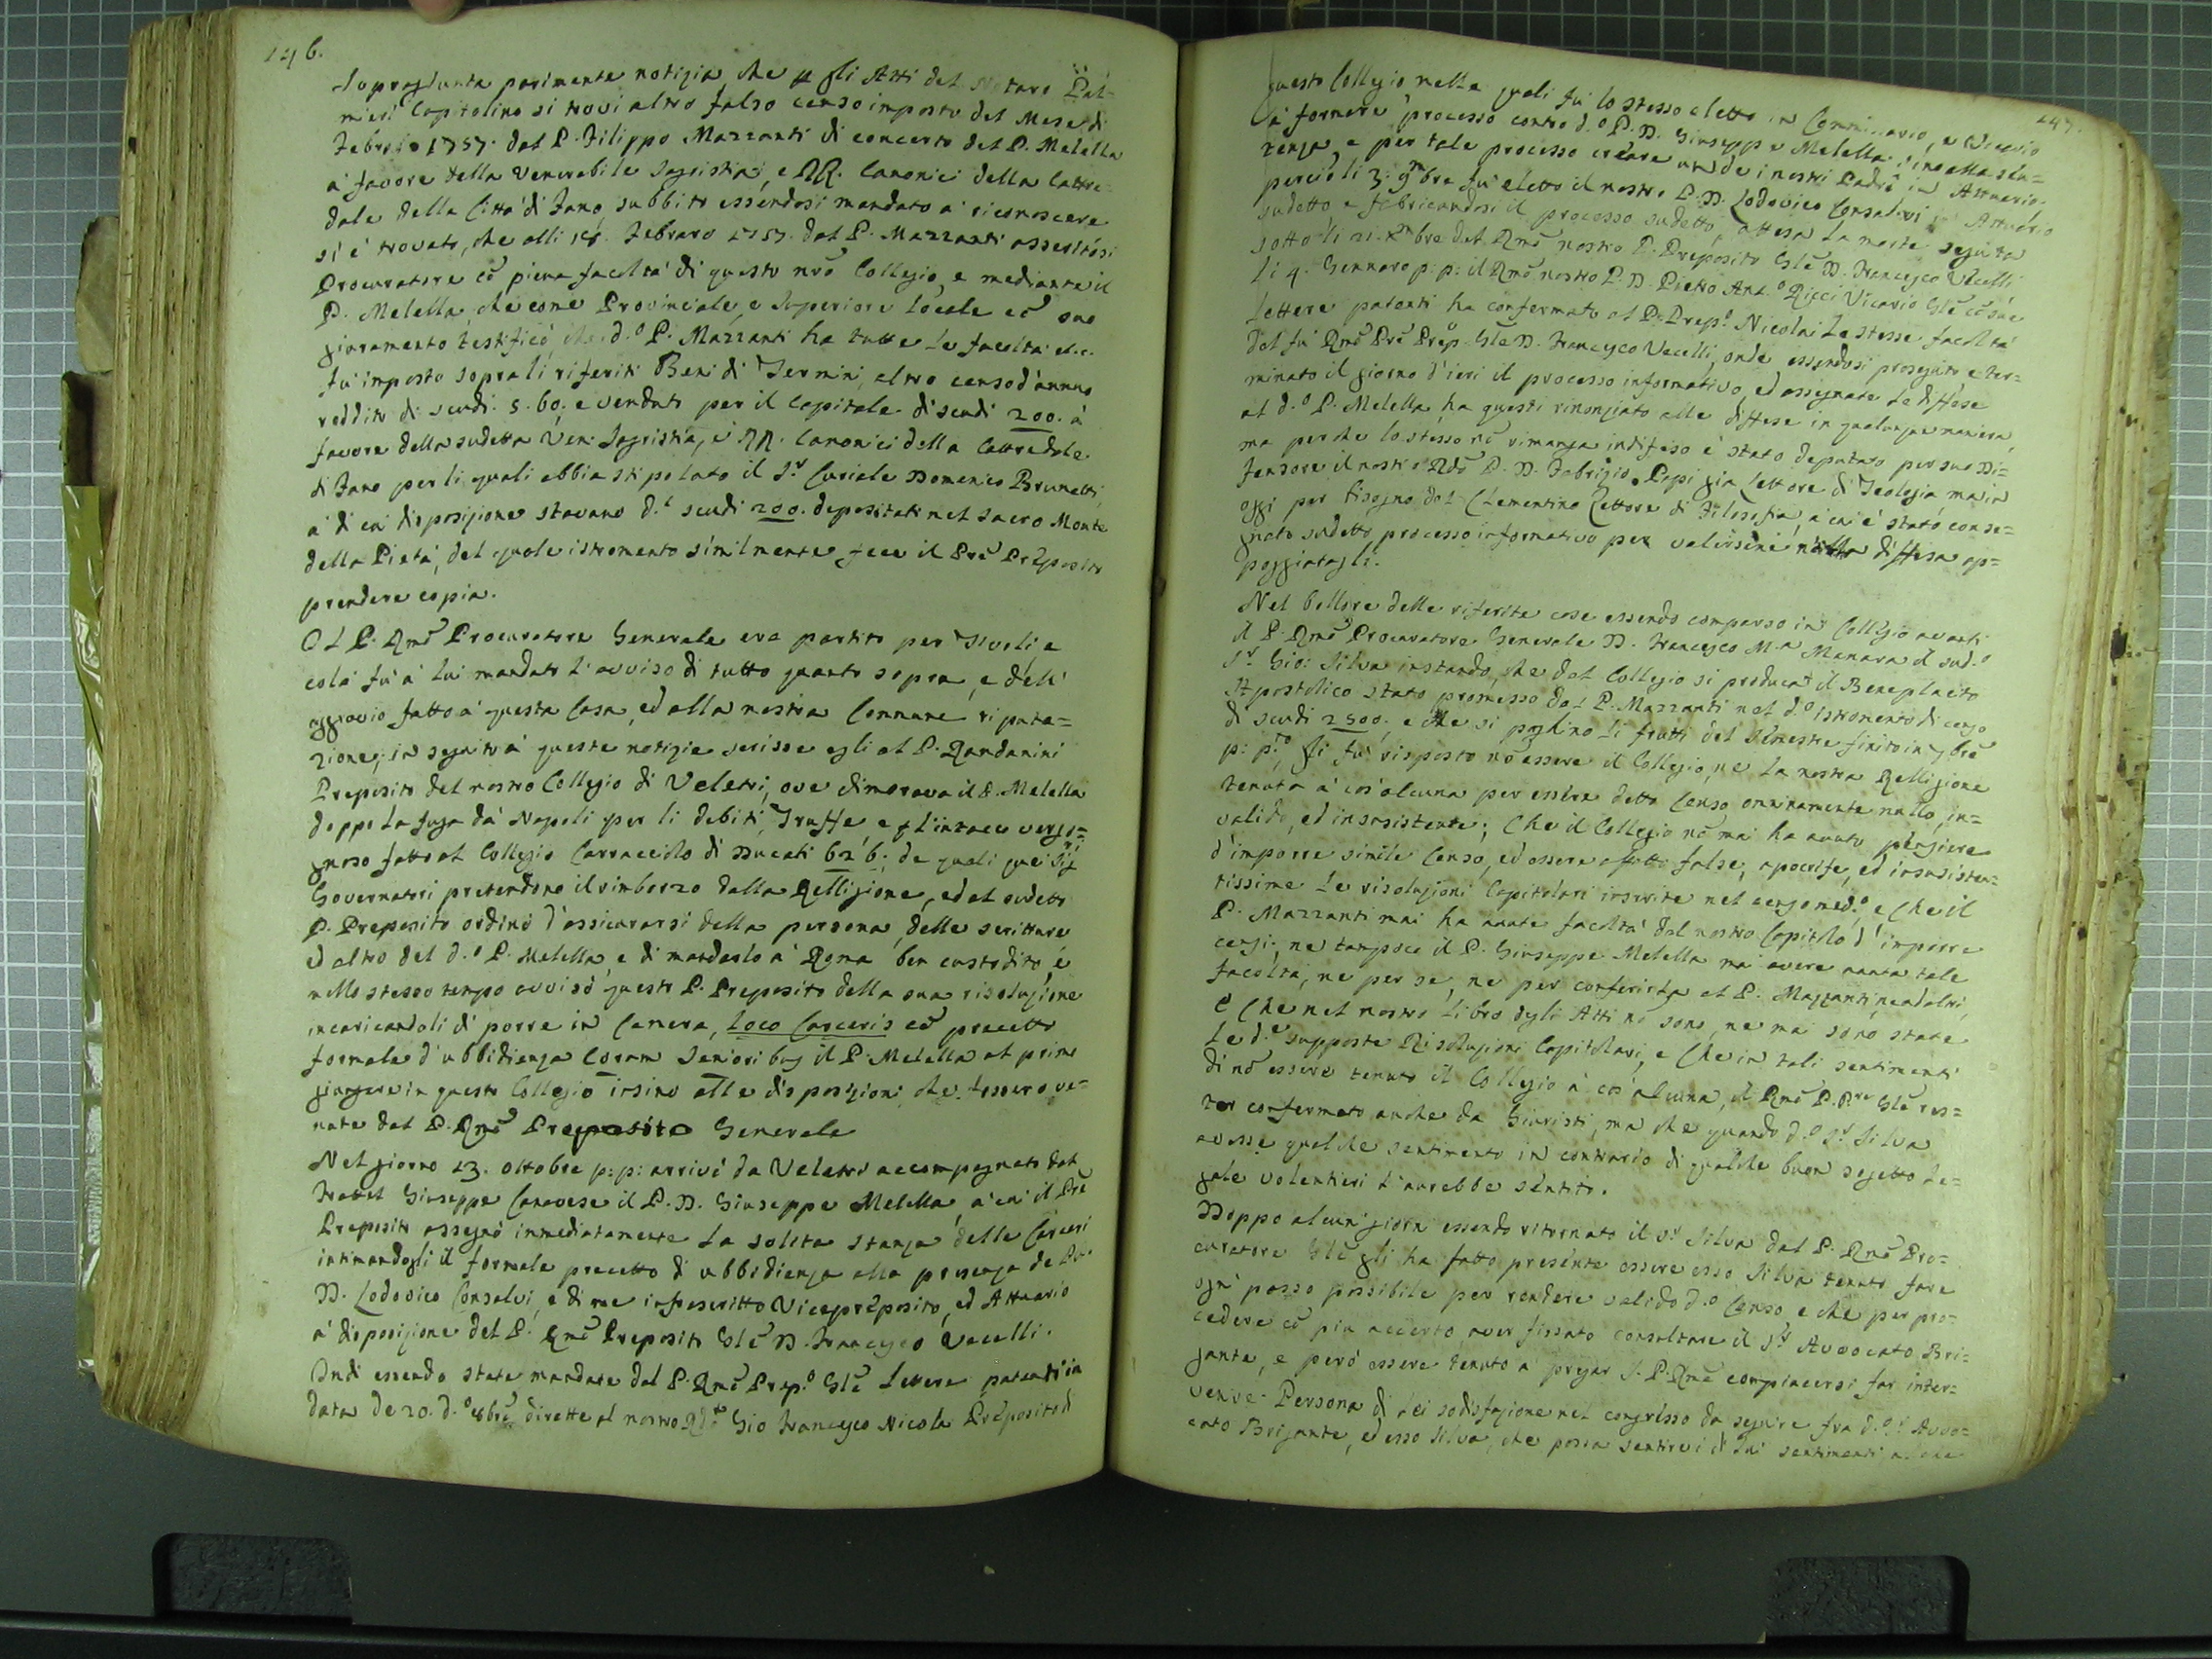 146.
Sopragiunta parimente notizia che p gli Atti del Notaro Pal=
mieri Capitolino si trovi altro falso censo imposto del Mese di
Febraro 1757. dal P. Filippo Mazzanti di concerto del P. Melella
a' favore della Venerabile Sagristia, e RR. Canonici della Catte=
dale della Città di Fano, subbito essendosi mandato a' riconoscere
si è trovato, che alli 18. Febraro 1757. dal P. Mazzanti asseritosi
Procuratore cō piena facoltà di questo nrō Collegio, e mediante il
P. Melella, che come Provinciale, e Superiore locale cō suo
giuramento testificò, che d.o P. Mazzanti ha tutte le facoltà etc.
fu imposto sopra li riferiti Beni di Termini, altro censo d'annuo
reddito di scudi 5.60. e venduto per il Capitale di scudi 200. à
favore della sudetta Ven. Sagristia, e RR. Canonici della Cattredale
di Fano per li quali abbia stipolato il S.r Curiale Domenico Brunetti
a' di cui disposizione stavano d.i scudi 200. depositati nel Sacro Monte
della Pietà, del quale istromento similmente fece il Prē Preposito
prendere copia.
Il P. Rmō Procuratore Generale era partito per Tivoli e
colà fu à lui mandato l'avviso di tutto quanto sopra, e dell'
aggravio fatto a' questa Casa, ed alla nostra Commune riputa=
zione; in seguito a' queste notizie scrisse egli al P. Randanini
Preposito del nostro Collegio di Veletri, ove dimorava il P. Melella
doppo la fuga dà Napoli per li debiti, Truffe, e p l'intacco vergo=
gnoso fatto al Collegio Carracciolo di Ducati 626; de quali que' Sig.ri
Governatori pretendono il rimborzo dalla Relligione, ed al sudetto
P. Preposito ordinò d'assicurarsi della persona, delle scritture
ed altro del d.o P. Melella, e di mandarlo à Roma ben custodito, e
nello stesso tempo avvisò questo P. Preposito della sua risoluzione
incaricandoli di porre in Camera, loco Carceris cō precetto
formale d'ubbidienza Coram Senioribus il P. Melella al primo
giungere in questo Collegio insino alle disposizioni che fossero ve=
nute dal P. Rmō Preposito Generale
Nel giorno 23. Ottobre p: p: arrivò da Veletri accompagnato dal
Fratel Giuseppe Canovese il P. D. Giuseppe Melella, a' cui il Prē
Preposito assegnò immediatamente la solita stanza delle Carceri
intimandogli il formale precetto di ubbidienza alla presenza de PP.
D. Lodovico Consalvi, e di me infrascritto Vicepreposito, ed Attuario
a' disposizione del P. Rmō Preposito Glē D. Francesco Vecelli.
Indi essendo state mandate dal P. Rmō Prep.o Glē lettere patenti in
data de 20. d.o 8brē dirette al nostro Gio Francesco Nicolai Preposito di
247.
questo Collegio, nelle quali fu lo stesso eletto in Commissario, e Vicario
a' formare processo contro d.o P. D. Giuseppe Melella sino alla sen=
tenza, e per tale processo creare un de i nostri Padri in Attuario.
perciò li 3. 9mbre fu eletto il nostro P. D. Lodovico Consalvi in Attuario
sudetto e fabricandosi il processo sudetto, attesa la morte seguita
sotto li 21. Xmbre del Rmō nostro P. Preposito Glē D. Francesco Vecelli
li 4. Gennaro p: p: il Rmō nostro P. D. Pietro Ant.o Ricci Vicario Glē cō sue
lettere patenti ha confermato al P. Prep.o Nicolai le stesse facoltà
dal fù Rmō Prē Prep.o Glē D. Francesco Vecelli, onde essendosi proseguito e ter=
minato il giorno d'ieri il processo informativo, ed assegnate le difese
al d.o P. Melella ha questi rinonziato alle diffese in qualunque maniera
ma perche lo stesso nō rimanga indifeso è stato deputato per suo Di=
fensore il nostro P. D. Fabrizio Papi già Lettore di Teologia ma in
oggi per bisogno del Clementino Lettore di Filosofia, a' cui è stato conse=
gnato sudetto processo informativo per valersene nella diffesa ap=
poggiatagli.
Nel bollore delle riferite cose essendo comparso in Collegio avanti
il P. Rmō Procuratore Generale D. Francesco M.a Manara il sud.o
S.r Gio: Silva instando, che dal Collegio si produca il Beneplacito
Apostolico stato promesso dal P. Mazzanti nel d.o istromento di censo
di scudi 2500. e che si paghino li frutti del Semestre finito in 9brē
p: p.to, gli fu risposto nō essere il Collegio, ne la nostra Relligione
tenuta a' cos' alcuna per essere detto Censo onninamente nullo, in=
valido, ed insosistente; Che il Collegio nō mai ha avuto pensiere
d'imporre simile Censo, ed essere affatto false, apocrife, ed insosisten=
tissime le risoluzioni Capitolari inserite nel censo med.o, e Che il
P. Mazzanti mai ha avute facoltà dal nostro Capitolo d'imporre
censi, ne tampoco il P. Giuseppe Melella mai avere avuta tale
facoltà, ne per se, ne per conferirla al P. Mazzanti, ne ad altri,
E Che nel nostro libro degli Atti nō sono, ne mai sono state
le d.e supposte Risoluzioni Capitolari, e Che in tali sentimenti
di nō essere tenuto il Collegio a' cos' alcuna, il Rmō P. P.re Glē res=
tar confermato anche da Giuristi, ma che quando d.o S.r Silva
avesse qualche sentimento in contrario di qualche buon sogetto Le=
gale volentieri l'avrebbe sentito.
Doppo alcuni giorni essendo ritornato il S.r Silva dal P. Rmō Pro=
curatore Glē gli ha fatto presente essere esso Silva tenuto fare
ogni passo possibile per rendere valido d.o Censo, e che per pro=
cedere cō più accerto, aver fissato consultare il S.r Avvocato Bri=
gante, e però essere tenuto a' pregar S. P. Rmā compiacersi far inter=
venire Persona di lei sodisfazione nel congresso da seguire fra d.o S.r Avvo=
cato Brigante, ed esso Silva, che possa sentirvi il di lui sentimenti